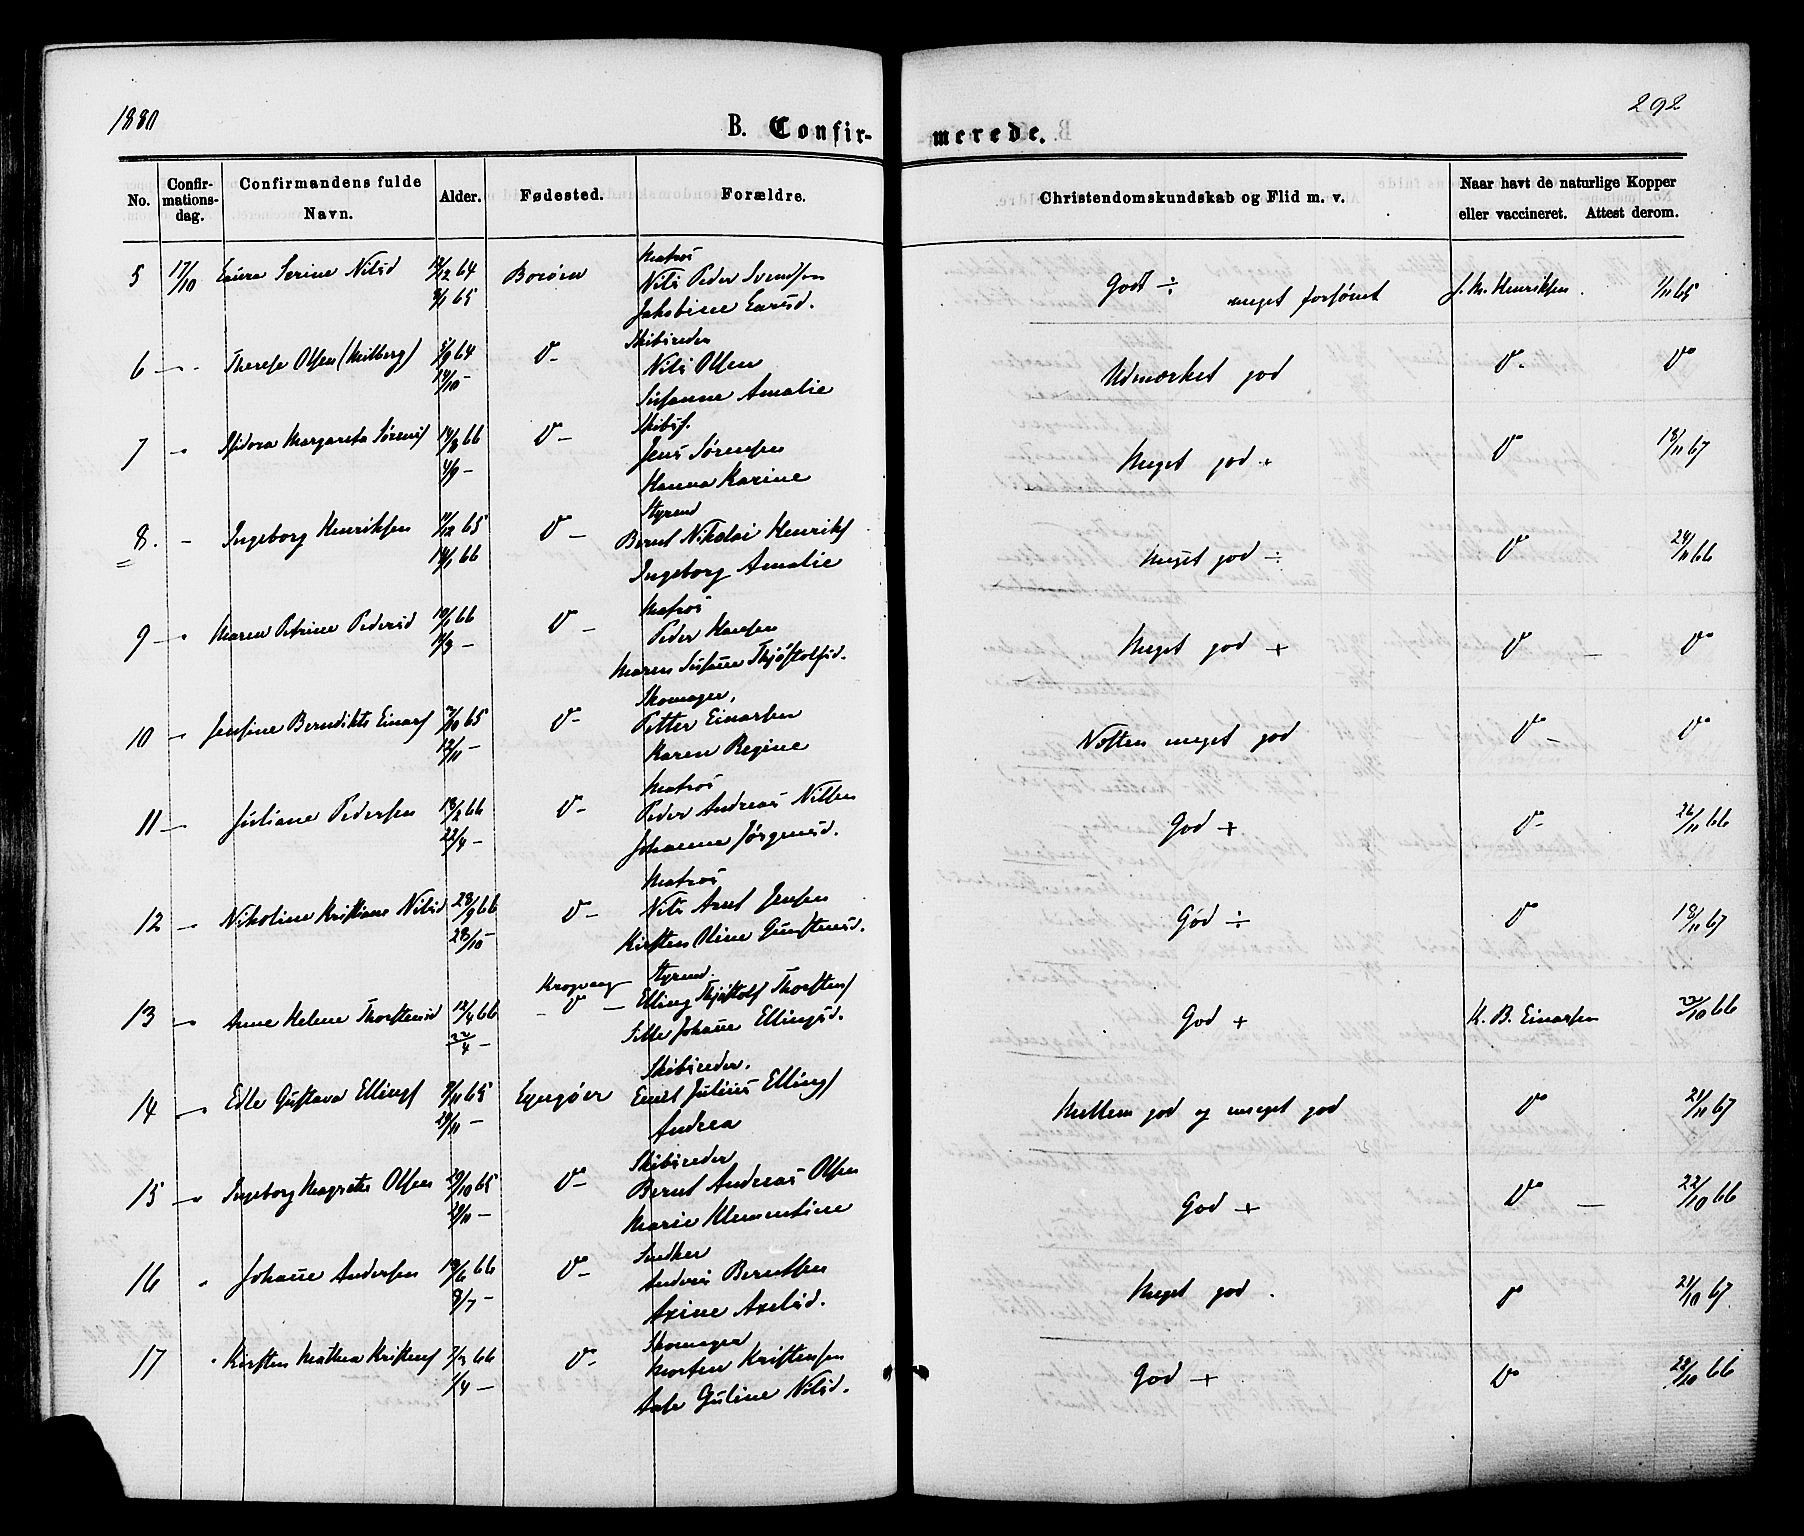 1880
292
B. Confir-
merede.
No.
Confir-
mations-
dag.
Confirmandens fulde
Navn.
Alder.
Fødested.
Forældre.
Christendomskundskab og Flid m. v.
Naar havt de naturlige Kopper
eller vaccineret. Attest derom.
5 17/10 Serine Nilsd 64 Borøen Matros
65 Nils Peder Svendsen
Jakobine
Godt ÷ meget forsømt Henriksen 1/11 65
6 Therese Olsen (Milberg) 5/9 64 V- Skibsreder
14/10 - Nils Olsen
Susanne Amalie
Udmærket god V- V
7 Isidora Margareta Sørens 66 V- Skibsf.
4/9 - Jens Sørensen
Hanna Karine
Meget god + V 18/11 67
8. - Ingeborg Henriksen 11/12 65 V- Styrmd
14/1 66 Bernt Nikolai Henriks
Ingeborg Amalie
Meget god ÷ V 24/11 66
9 Maren Petrine Pedersd 66 V- Matros
- Peder Hansen
Maren Susane Thjøstolfsd.
Meget god + V - V
10 Bendikte Einars 65 V- Skomager,
12/11 - Petter Einarsen
Karen Regine
Næsten meget god V - V
11 Juliane Pedersen 18/2 66 V- Matros
22/4 - Peder Andreas Nilsen
Johanne Jørgensd.
God + V- 26/11 66
12 Nikoline Kristiane Nilsd 23/9 66 V- Matros
28/10 - Nils Arnt Jensen
Kirsten Oline
God ÷ V 18/11 67
13 Anne Helene Thorstensd 12/4 66 Krogveng Styrmd.
22/4 - - V - Elling Thjøstolf Thorstens
Johane Ellingsd.
God + K. B. Einarsen 22/10 66
14 Edle Gustava Ellings 65 Lyngøer Skibsreder.
- Emil Julius Ellings
Andrea
Mellem god og meget god V 21/11 67
15 Ingeborg Magrete Olsen 29/10 65 V- Skibsreder
- Bernt Andreas Olsen
Marie Klementine
God + V - 22/10 66
16 Johane Andersen 66 V- Snedker
8/7 - Anders Berntsen
Axine Axelsd.
Meget god . V 21/10 67
17 Kirsten Mathea Kristens 66 V- Skomager
1/4 - Morten Kristensen
Guline Nilsd.
God + V 22/10 66